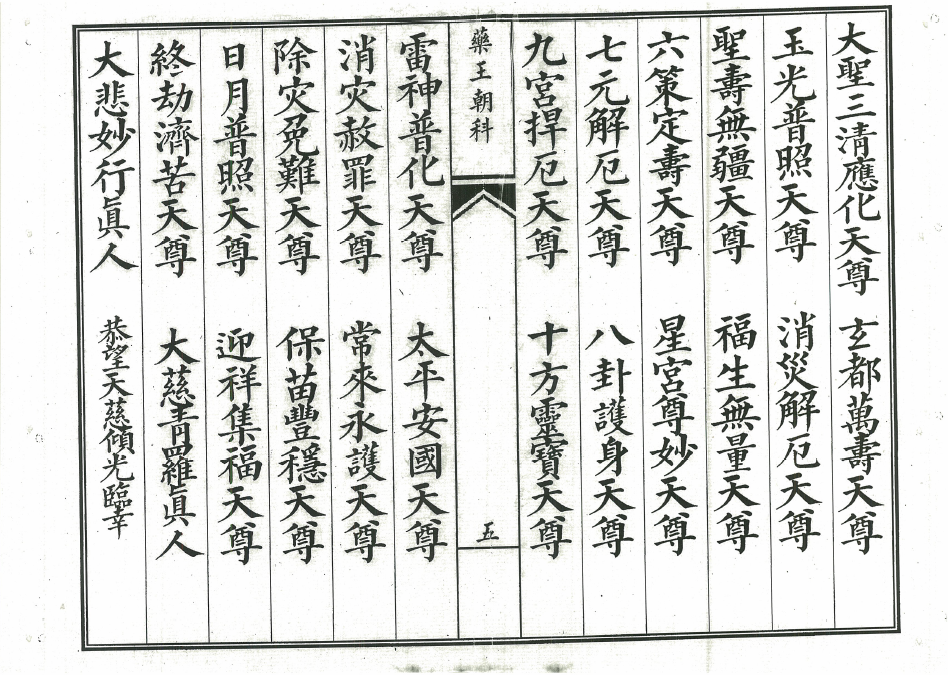 大聖三清應化天尊 玄都萬壽天尊
玉光普照天尊 消災解厄天尊
聖壽無疆天尊 福生無量天尊
六策定壽天尊 星宮尊妙天尊
七元解厄天尊 八卦護身天尊
九宮捍厄天尊 十方靈寶天尊
藥王朝科 五
雷神普化天尊 太平安國天尊
消灾赦罪天尊 常來永護天尊
除灾免難天尊 保苗豐穩天尊
日月普照天尊 迎祥集福天尊
終劫濟苦天尊 大慈青羅眞人
大悲妙行眞人 恭望天慈傾光臨幸